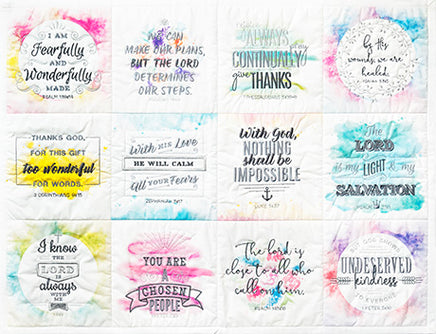 I AM
Fearfully
AND
Wonderfully
MADE
PSALM 139:14
WE CAN
MAKE OUR PLANS,
BUT THE LORD
DETERMINES
OUR STEPS.
ALWAYS
CONTINUALLY
give THANKS
By His
wounds, we are
healed.
ISAIAH 53:5
THANKS GOD,
FOR THIS GIFT
too wonderful
FOR WORDS.
2 CORINTHIANS 9:15
With HIS LOVE
HE WILL CALM
All YOUR Fears
ZEPHANIAH 3:17
With God,
NOTHING
shall be
IMPOSSIBLE
LUKE 1:37
The
LORD
is my LIGHT & my
SALVATION
I know
THE
LORD IS
always
WITH ME
YOU ARE
A
CHOSEN
PEOPLE
The lord is
close to all who
call on him.
UNDESERVED
kindness
TO EVERYONE